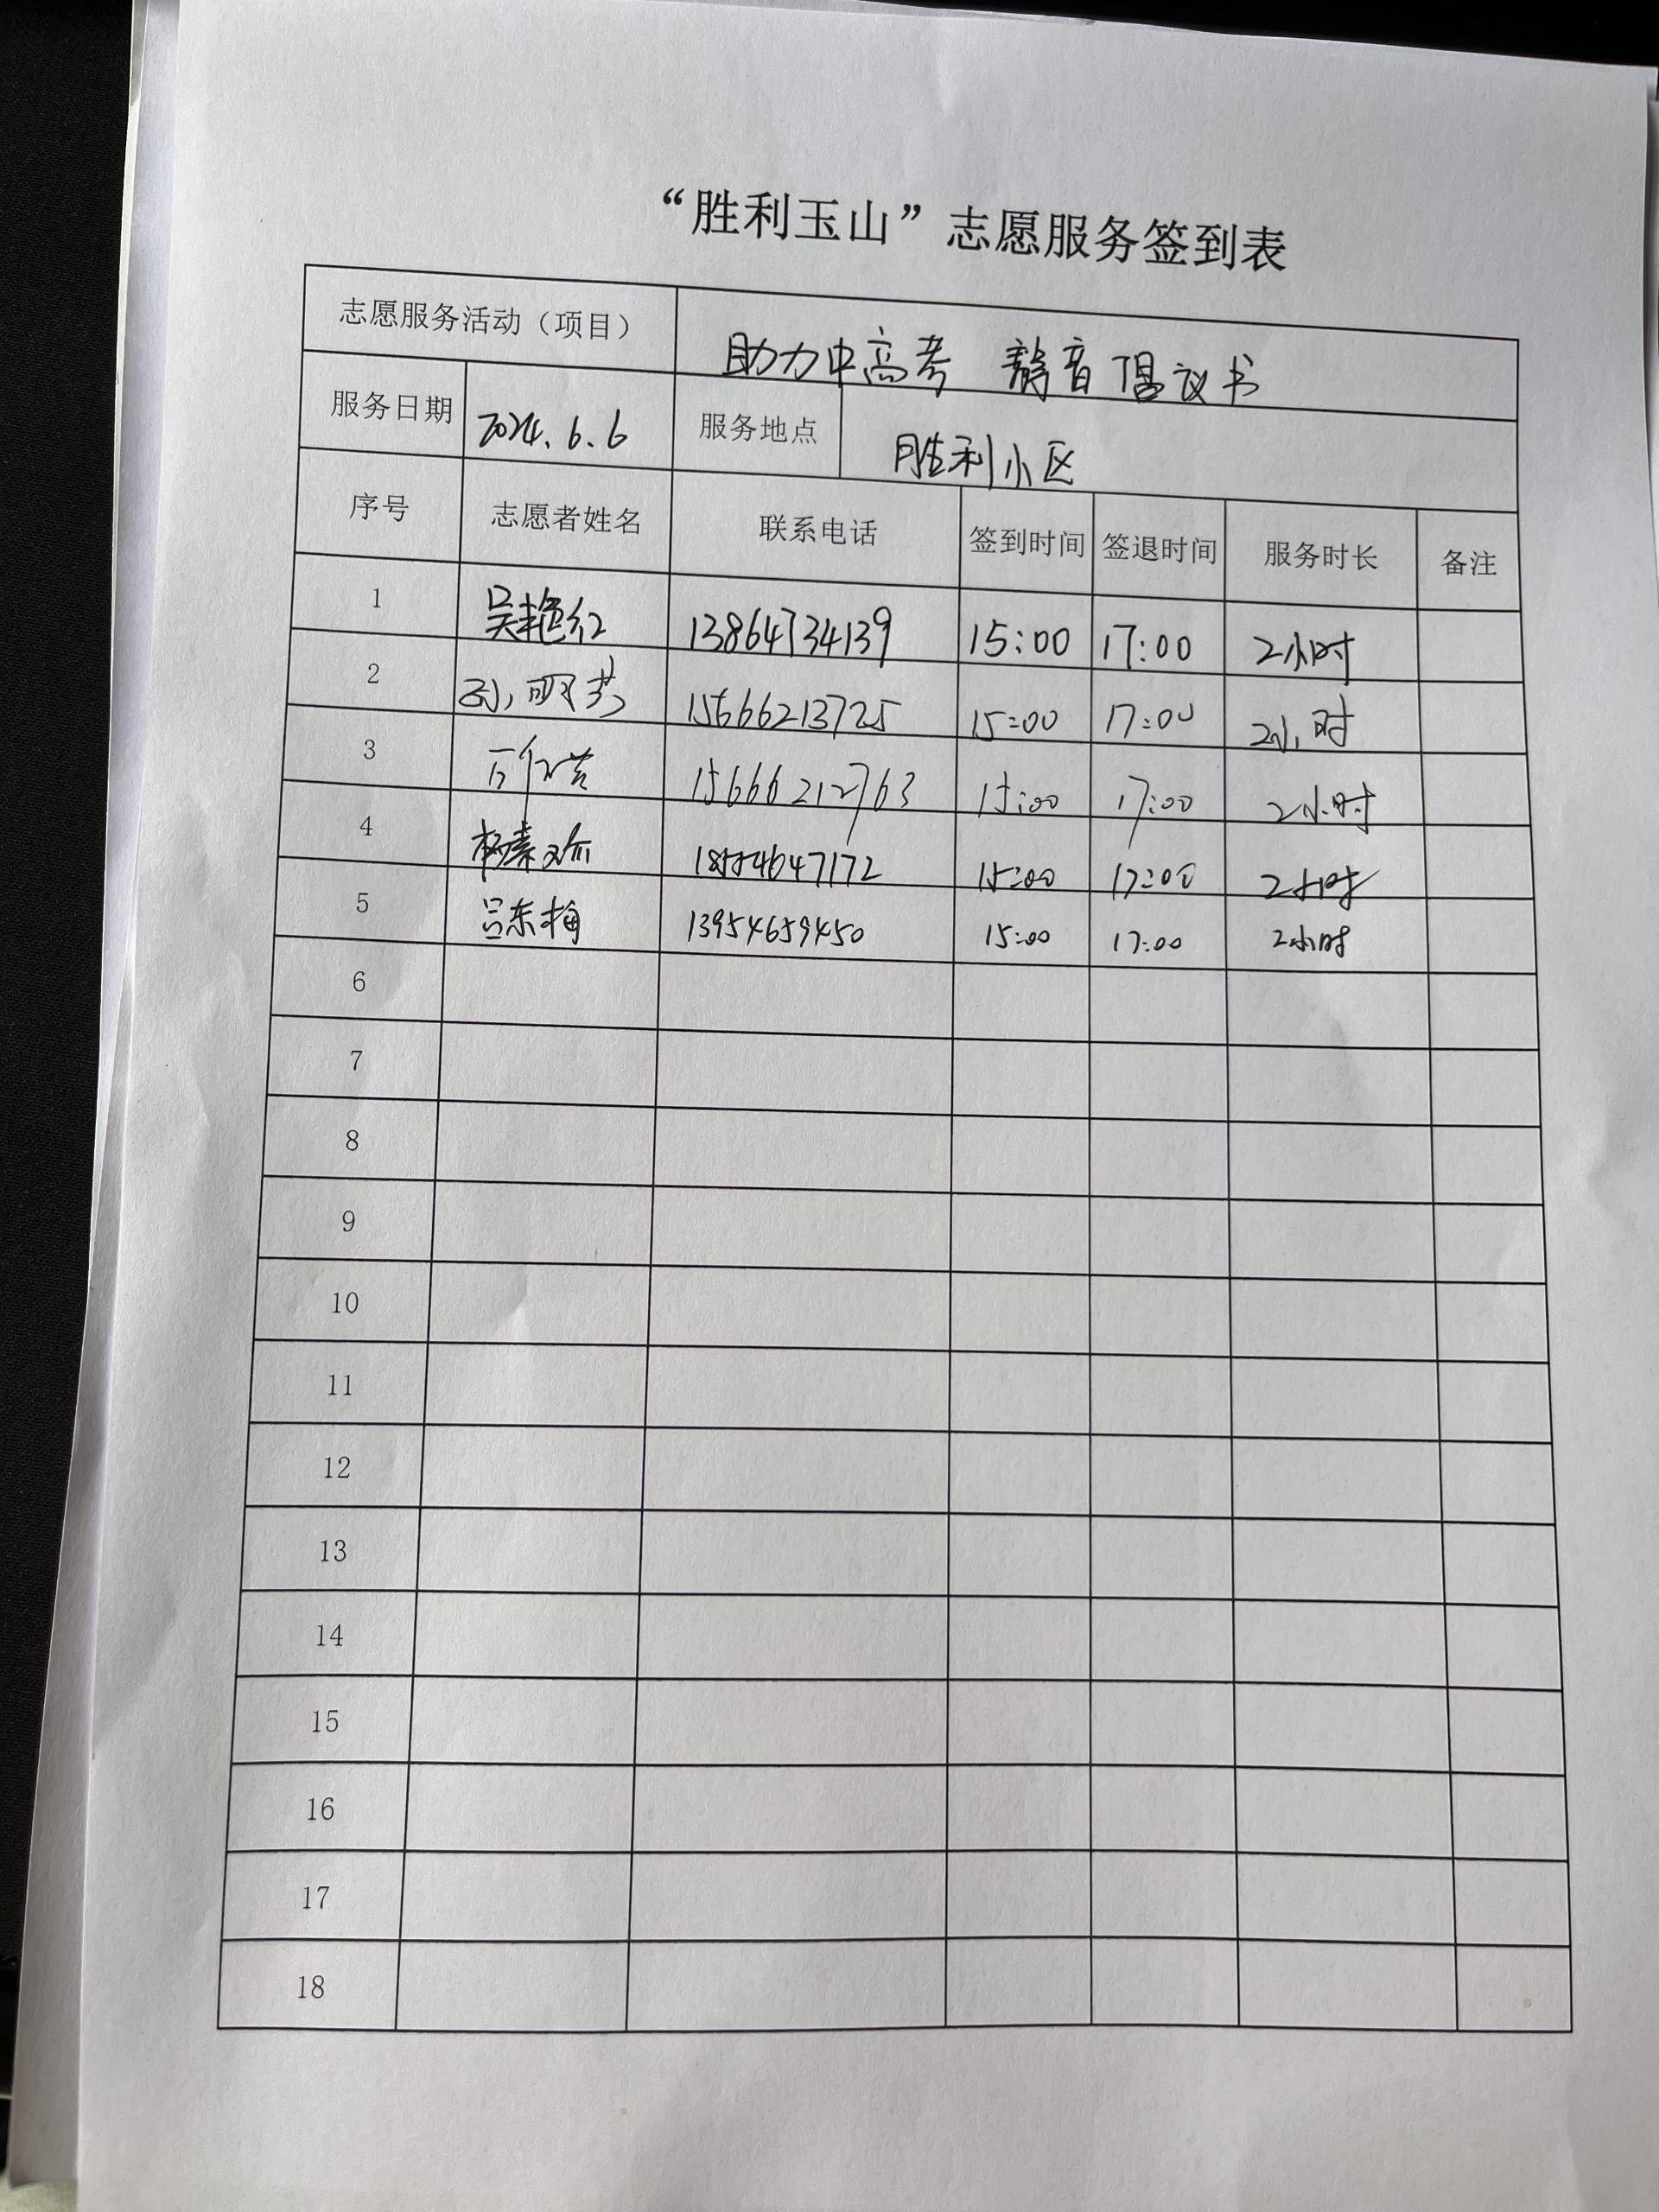 “胜利玉山”志愿服务签到表
志愿服务活动（项目） 助力中高考 静音倡议书
服务日期 2024.6.6 服务地点 胜利小区
序号 志愿者姓名 联系电话 签到时间 签退时间 服务时长 备注
1 吴艳红 13864734139 15:00 17:00 2小时
2 15666213725 15:00 17:00 2小时
3 15666212763 15:00 17:00 2小时
4 15:00 17:00 2小时
5 吕东梅 13954659450 15:00 17:00 2小时
6
7
8
9
10
11
12
13
14
15
16
17
18